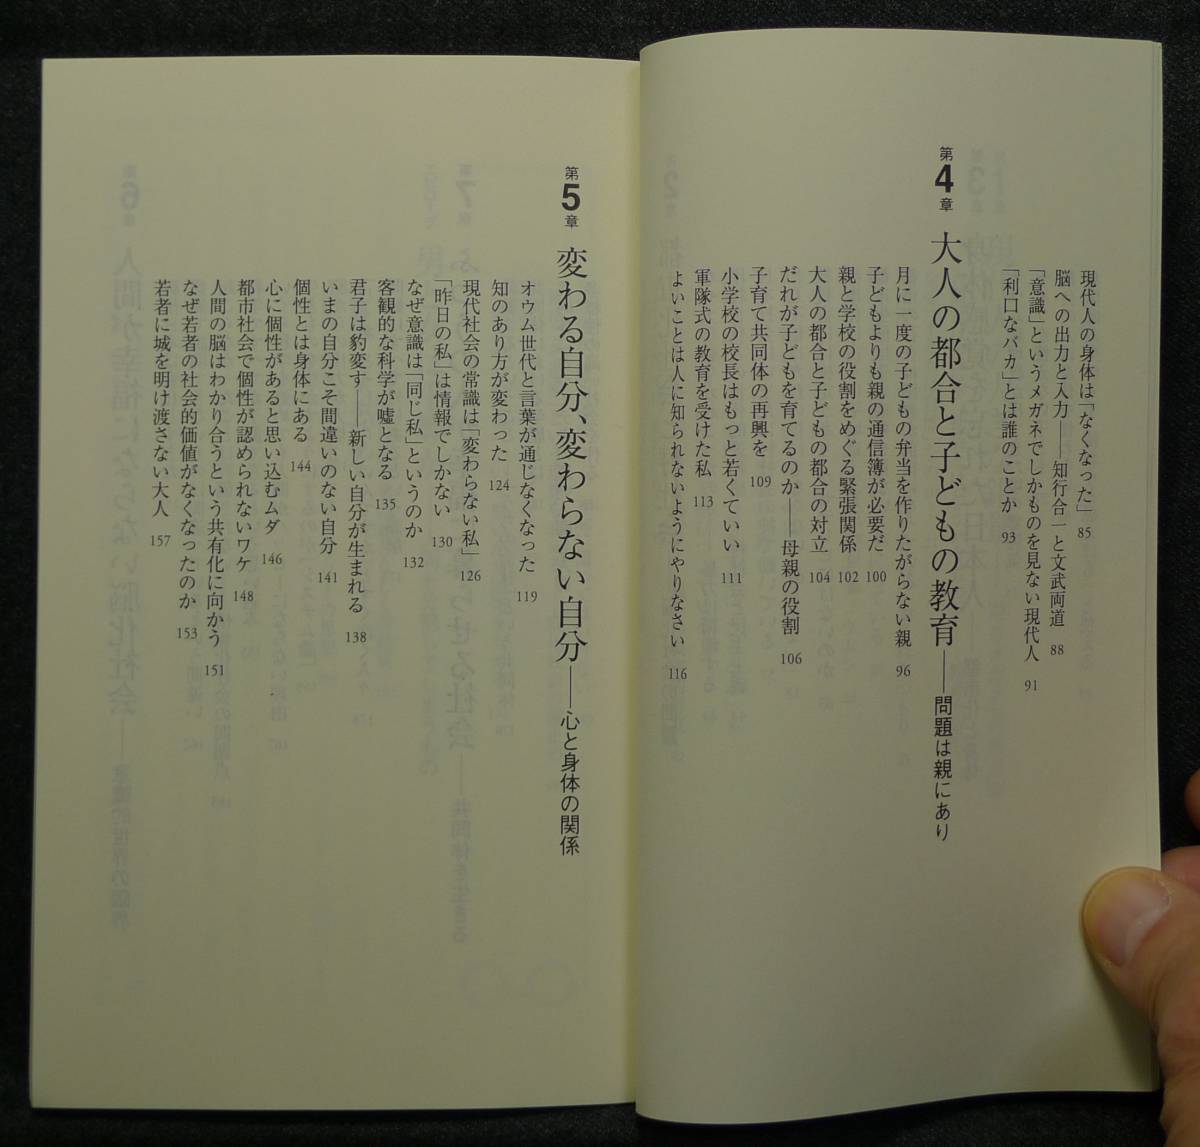 現代人の身体は「なくなった」 85
脳への出力と入力——知行合一と文武両道 88
「意識」というメガネでしかものを見ない現代人 91
「利口なバカ」とは誰のことか 93
第4章 大人の都合と子どもの教育——問題は親にあり
月に一度の子どもの弁当を作りたがらない親 96
子どもよりも親の通信簿が必要だ 100
親と学校の役割をめぐる緊張関係 102
大人の都合と子どもの都合の対立 104
だれが子どもを育てるのか——母親の役割 106
子育て共同体の再興を 109
小学校の校長はもっと若くていい 111
軍隊式の教育を受けた私 113
よいことは人に知られないようにやりなさい 116
第5章 変わる自分、変わらない自分——心と身体の関係
オウム世代と言葉が通じなくなった 119
知のあり方が変わった 124
現代社会の常識は「変わらない私」 126
「昨日の私」は情報でしかない 130
なぜ意識は「同じ私」というのか 132
客観的な科学が嘘となる 135
君子は豹変す——新しい自分が生まれる 138
いまの自分こそ間違いのない自分 141
個性とは身体にある 144
心に個性があると思い込むムダ 146
都市社会で個性が認められないワケ 148
人間の脳はわかり合うという共有化に向かう 151
なぜ若者の社会的価値がなくなったのか 153
若者に城を明け渡さない大人 157